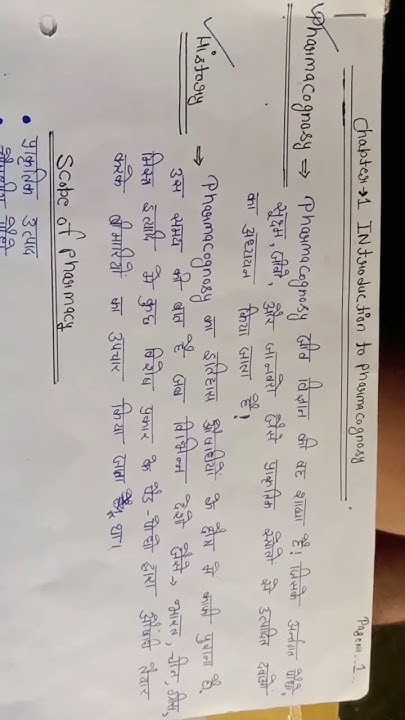 Page no. 1
Chapter→1 INtroduction to pharmacognosy
Pharmacognosy → Pharmacognosy जीव विज्ञान की वह शाखा है। जिसके अर्न्तगत पौधे,
सूक्ष्म, जीवो, और जानवरो जैसे प्राकृतिक स्त्रोतो से उत्पादित दवाओ
का अध्ययन किया जाता है!
History → Pharmacognosy का इतिहास औषधियों के क्षेत्र मे काफी पुराना है,
उस समय की बात है जब विभिन्न देशो जैसे→ भारत, चीन, ग्रीस,
मिस्त्र इत्यादि मे कुछ विशेष प्रकार के पेड़-पौधो द्वारा औषधि तैयार
करके बीमारियों का उपचार किया जाता था।
Scope of Pharmacy
• प्राकृतिक उत्पाद
•